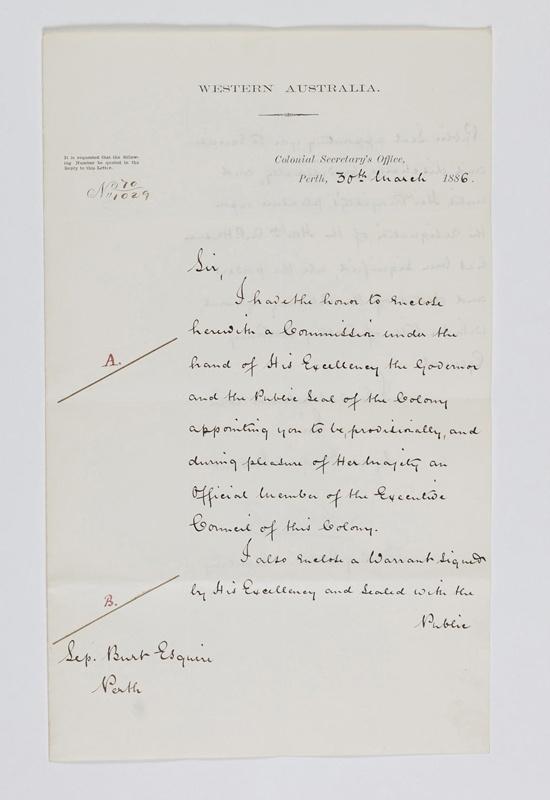 WESTERN AUSTRALIA.
It is requested that the follow-
ing Number be quoted in the
Reply to this Letter.
Colonial Secretary's Office,
No 70/1029
Perth, 30th March 1886.
Sir,
I have the honor to enclose
herewith a Commission under the
A.
hand of His Excellency the Governor
and the Public Seal of the Colony
appointing you to be, provisionally, and
during pleasure of Her Majesty an
Official Member of the Executive
Council of this Colony.
I also enclose a Warrant signed
B.
by His Excellency and sealed with the
Public
Sep. Burt Esquire
Perth